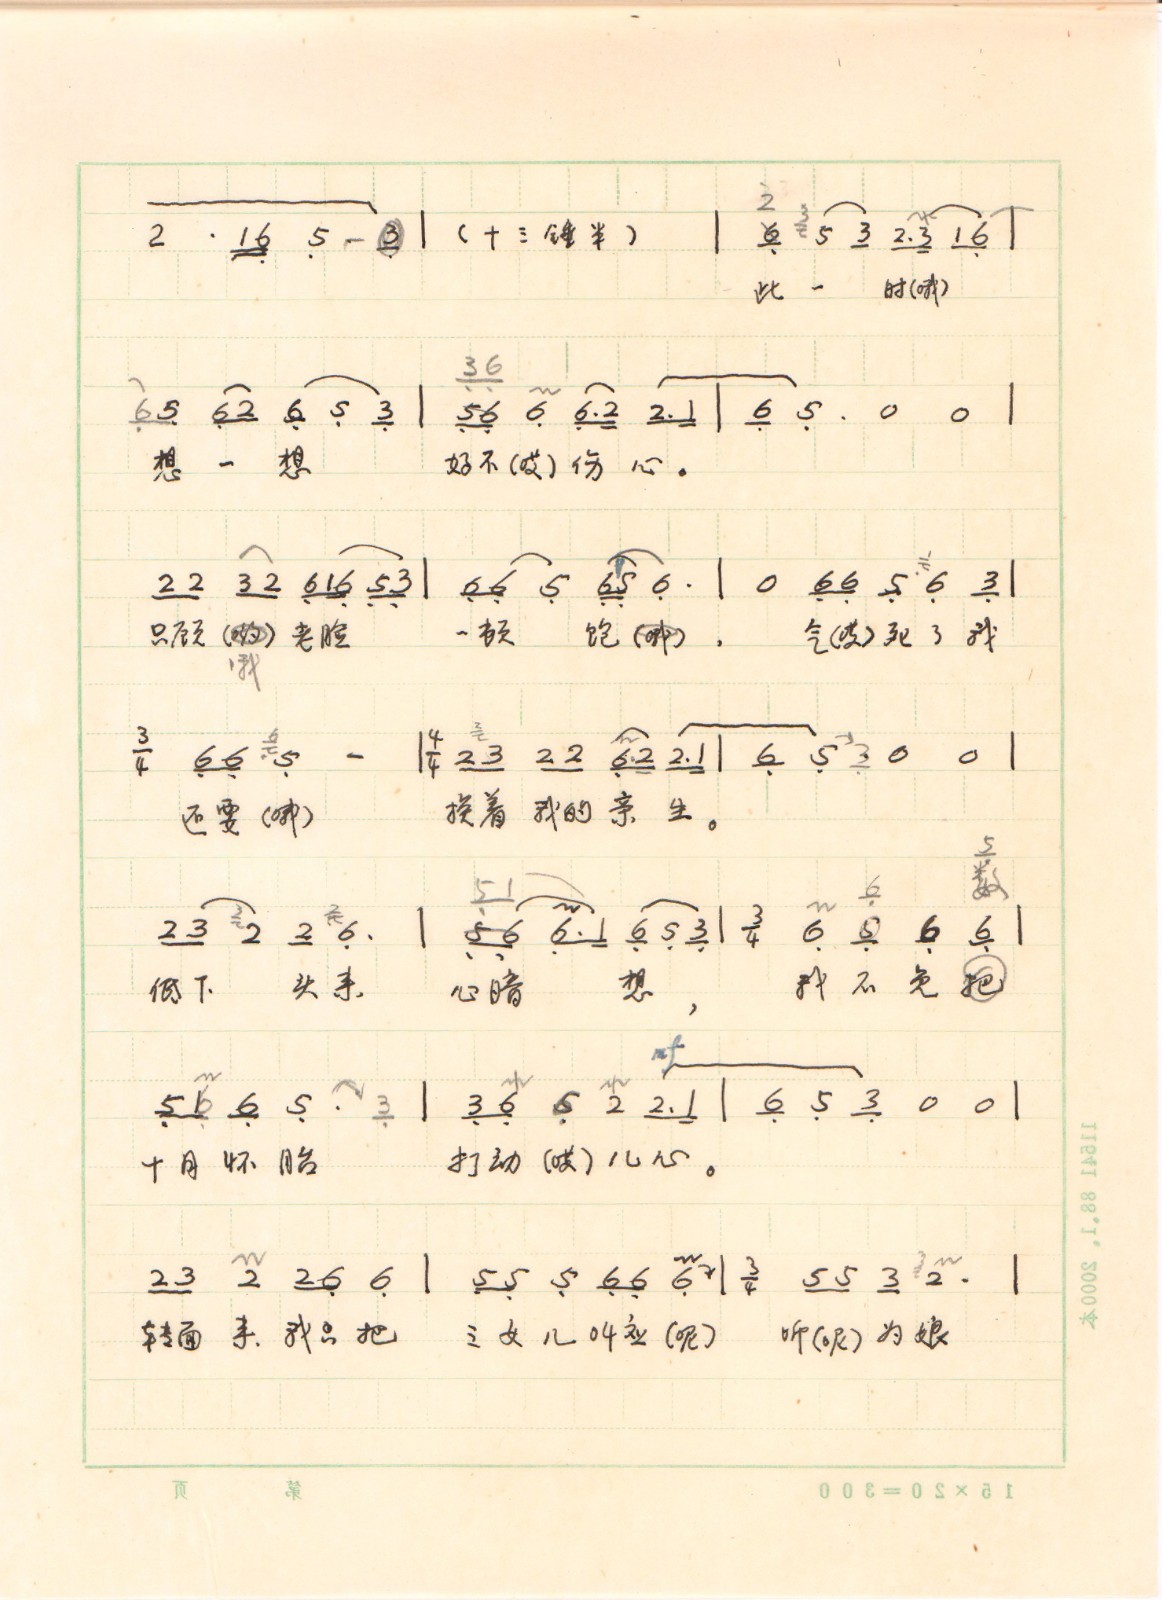 2 · 16 5 - 3 | (十三锤半) | 6 5 3 2.3 16 |
此一 时(哦)
65 62 6 5 3 | 56 6 6.2 2.1 | 6 5 . 0 0 |
想一想 好不(哎)伤心。
22 32 616 53 | 66 5 65 6 . | 0 66 5 6 3 |
只顾 老脸 一顿 饱 , 气(哎)死了我
哦
3/4 66 5 - | 4/4 23 22 6.2 2.1 | 6 5 3 0 0 |
还要 挨着我的亲生。
23 2 2 6 . | 56 6.1 6 5 3 | 3/4 6 5 6 6 |
低下 头来 心暗 想, 我不免把
51 6 5 . 3 | 36 5 2 2.1 | 6 5 3 0 0 |
十月怀胎 打动(哎)儿心。
23 2 26 6 | 55 5 66 6 | 3/4 55 3 2 . |
转面来我只把 三女儿叫应(呢) 听(呢)为娘
第 页 15×20=300
11541 88.1. 2000本